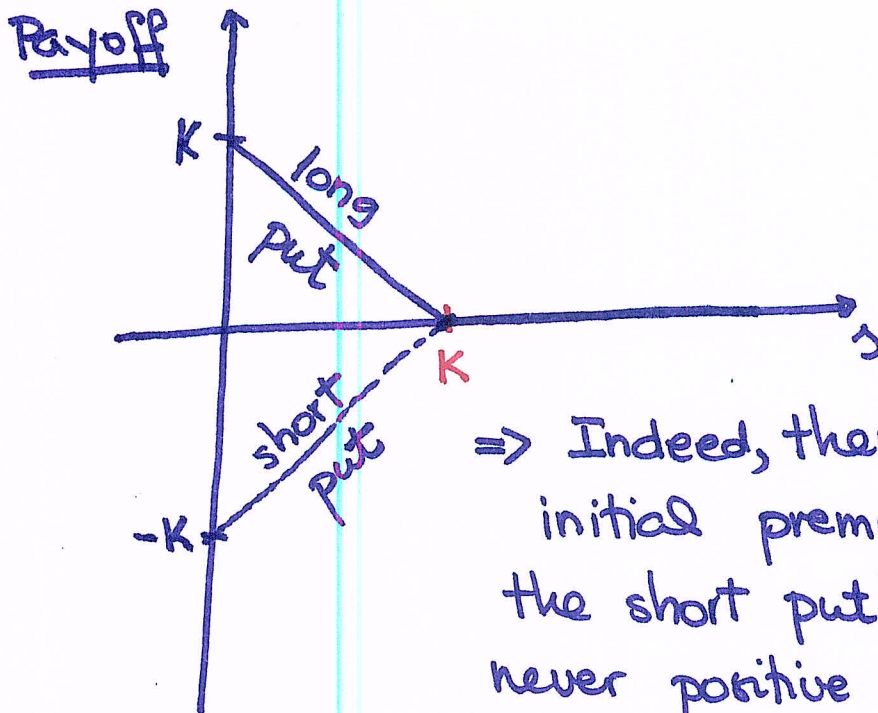 Payoff
K
long
put
s
K
short
put
-K
=> Indeed,
initial
the short put
never positive